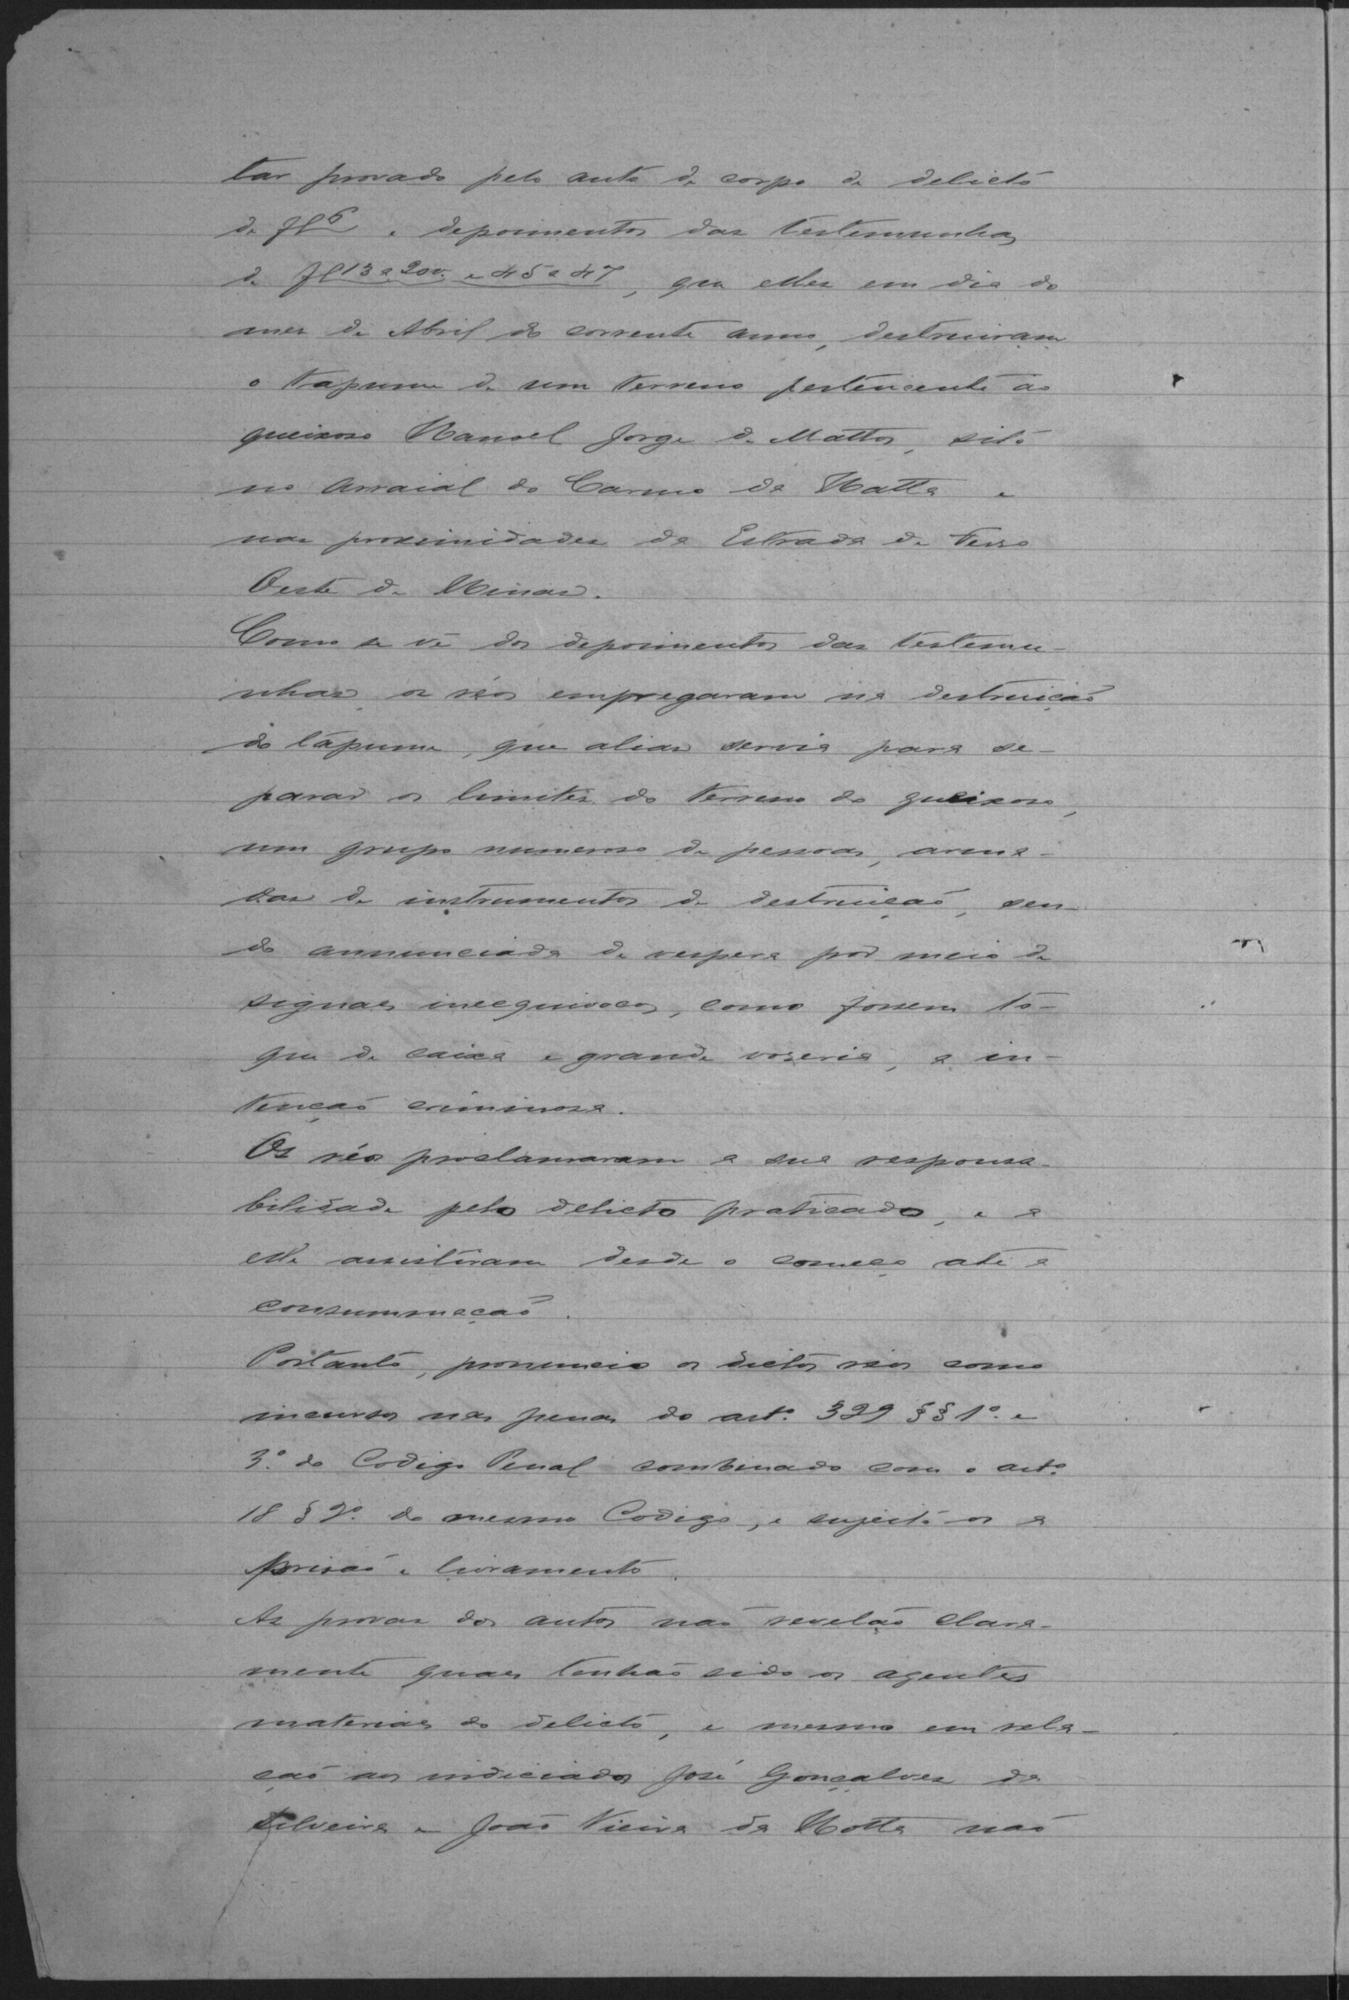 tar provado pelo auto de corpo de delicto
de fl 6 e depoimentos das testemunhas
de fl 13 a 20v. e 45 a 47, que elles em dia do
mez de Abril do corrente anno, destruiram
o tapume de um terreno pertencente ao
queixoso Manoel Jorge de Mattos, sito
no Arraial do Carmo da Matta e
nas proximidades da Estrada de Ferro
Oeste de Minas.
Como se vê dos depoimentos das testemu-
nhas os réos empregaram na destruição
do tapume, que alias servia para se-
parar os limites do terreno do queixoso,
um grupo numeroso de pessoas, arma-
das de instrumentos de destruição, sen-
do annunciada de vespera por meio de
signaes inequivocos, como fossem to-
que de caixa e grande vozeria, a in-
tenção criminosa.
Os réos proclamaram a sua responsa-
bilidade pelo delicto praticado, e a
elle assistiram desde o começo até a
consummação.
Portanto, pronuncio os dictos réos como
incursos nas penas do art.º 329 §§ 1º. e
3º. do Codigo Penal combinado com o art.º
18 § 2º. do mesmo Codigo, e sujeito-os a
prisão e livramento.
As provas dos autos não revelão clara-
mente quaes tenhão sido os agentes
materiaes do delicto, e mesmo em rela-
ção aos indiciados José Gonçalves da
Silveira e João Vieira da Motta não